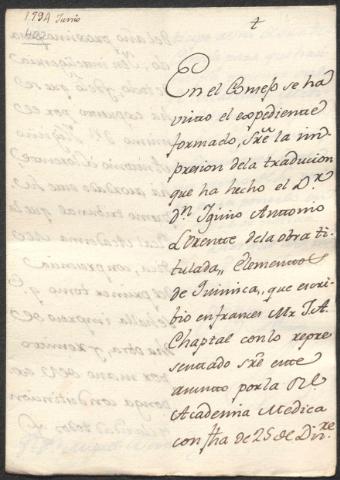 1794 Junio
402
t
En el Consejo se ha
visto el expediente
formado, sre la im
presion dela traducion
que ha hecho el Dr.
Dn. Iginio Antonio
Lorente dela obra ti
tulada,, Elementos
de Quimica,, que escri
bio en frances Mr. J. A.
Chaptal con lo repre
sentado sre este
asunto por la Rl.
Academia Medica
con fha de 25 de Dizre